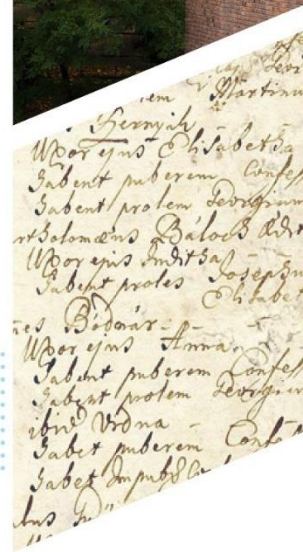 Martinu
Hernyik
Uxor ejus Elisabetha
Habent puberem Confess
Habent prolem Georgium
rtholomæus Báloch Ædit
Uxor ejus Juditha
Habent proles Josephu
Elisabe
nes Bodnár
Uxor ejus Anna
Habent puberem Confess
Habent prolem Georgiu
ibid Vidua
Habet puberem Conf
Habet Impub